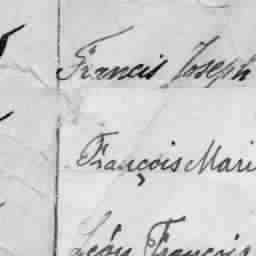 Francis Joseph
François Mari
Léon François